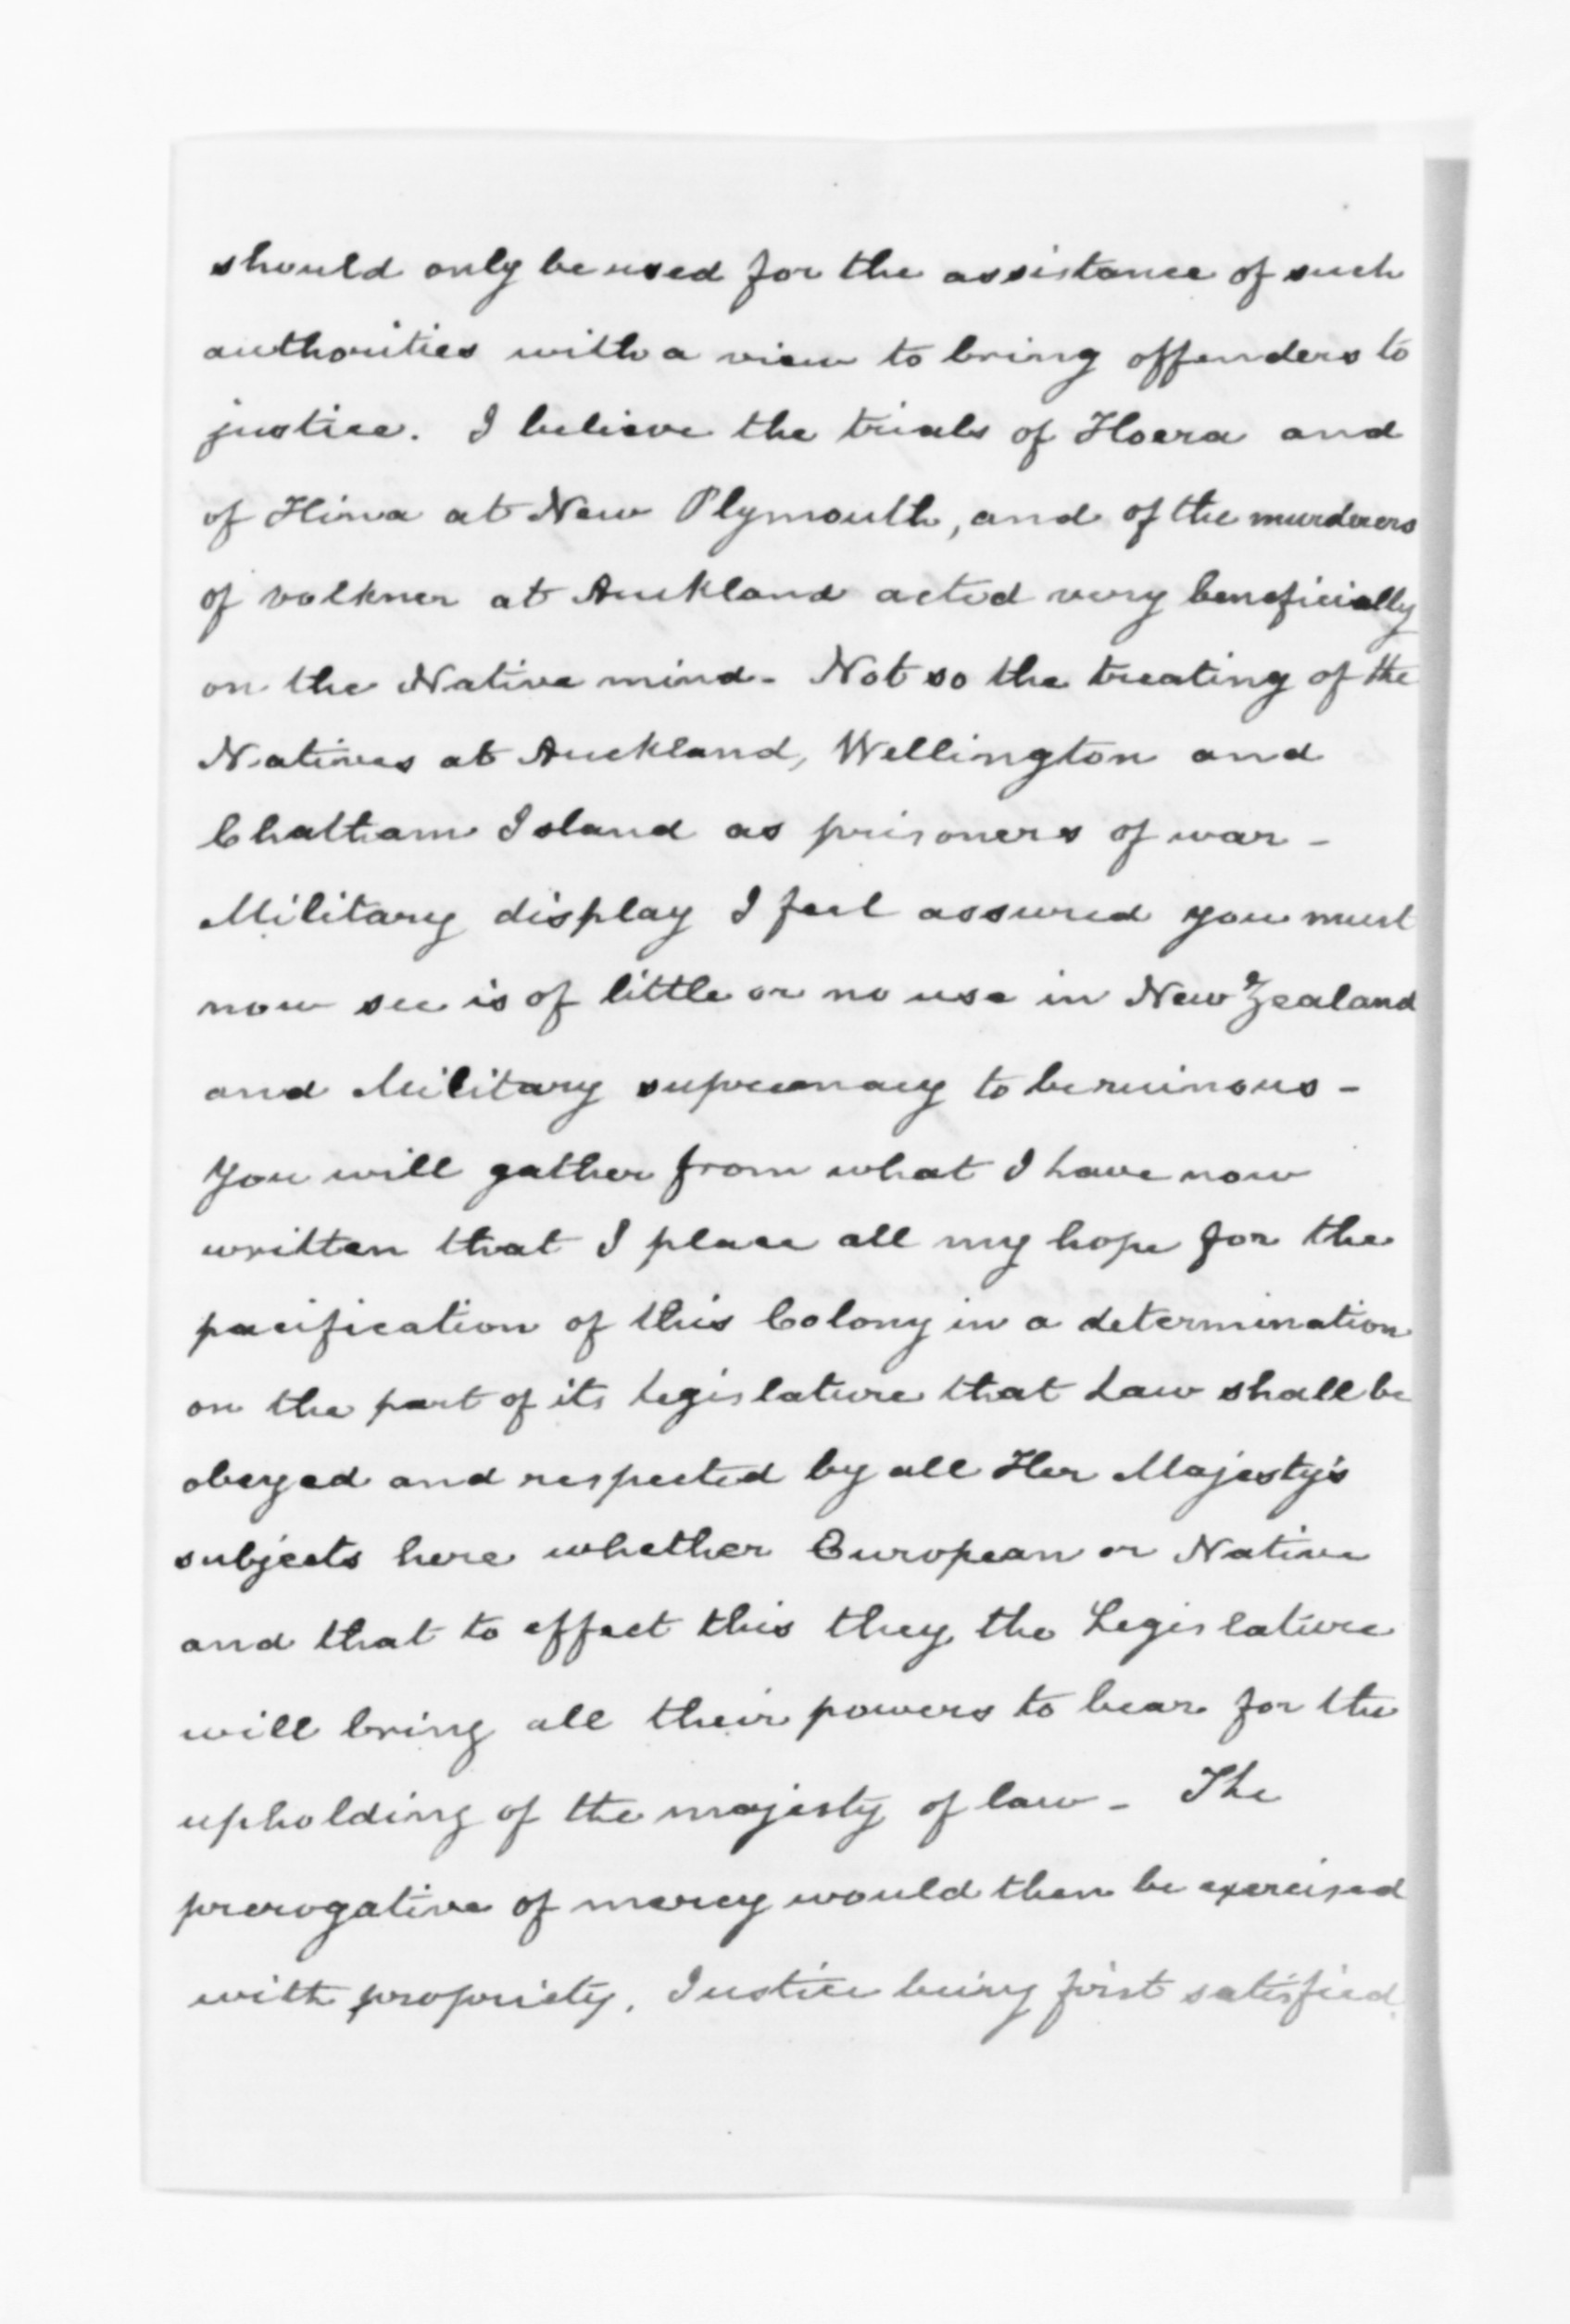 should only be used for the assistance of such
authorities with a view to bring offenders to
justice. I believe the trials of Hoera and
of Hina at New Plymouth, and of the murderers
of volkner at Auckland acted very beneficially
on the Native mind - Not so the treating of the
Natives at Auckland, Wellington and
Chatham Island as prisoners of war -
Military display I feel assured you must
now see is of little or no use in New Zealand
and Military supremacy to be ruinous -
You will gather from what I have now
written that I place all my hope for the
pacification of this Colony in a determination
on the part of its Legislature that Law shall be
obeyed and respected by all Her Majesty's
subjects here whether European or Native
and that to effect this they, the Legislature
will bring all their powers to bear for the
upholding of the majesty of law - The
prerogative of mercy would then be exercised
with propriety, Justice being first satisfied.